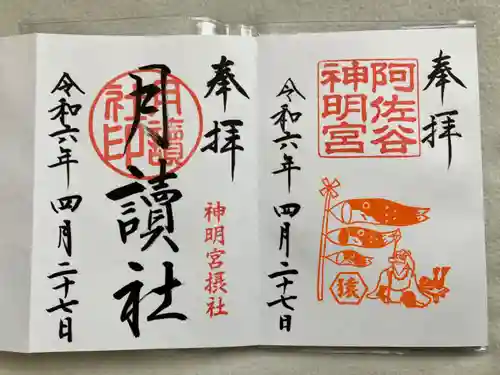 奉拝
阿佐谷
神明宮
令和六年 四月二十七日
猿
奉拝
月讀社
月讀
社印
神明宮摂社
令和六年 四月二十七日